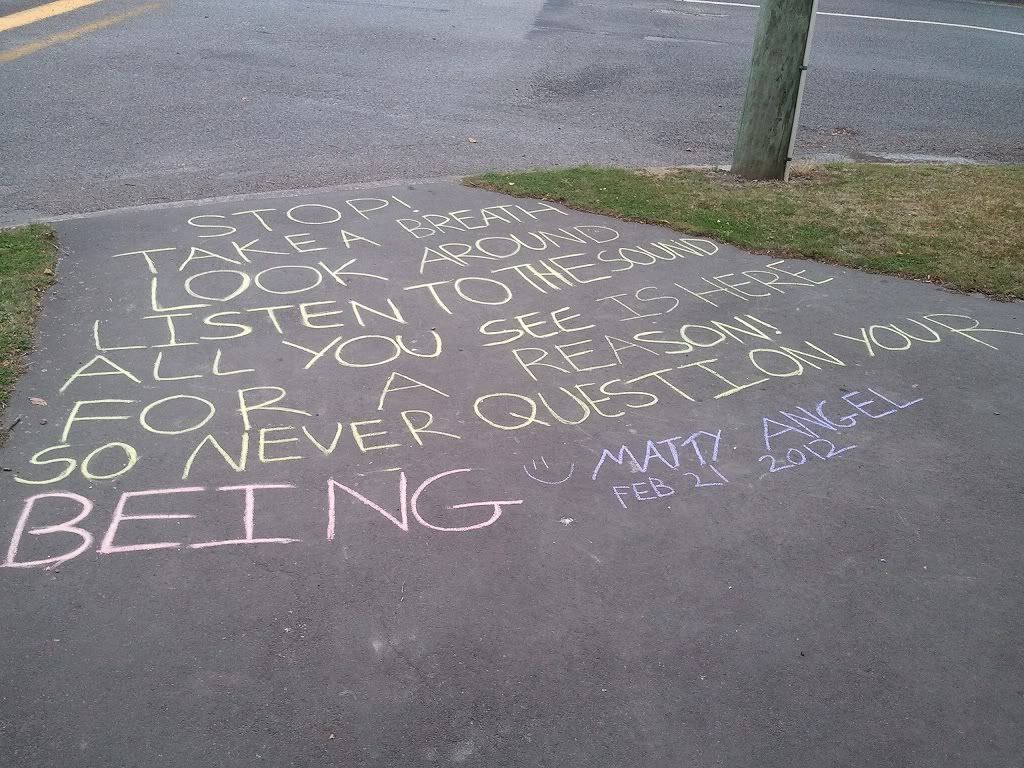 STOP!
TAKE A BREATH
LOOK AROUND
LISTEN TO THE SOUND
ALL YOU SEE IS HERE
FOR A REASON!
SO NEVER QUESTION YOUR
BEING
MATTY ANGEL
FEB 21 2012